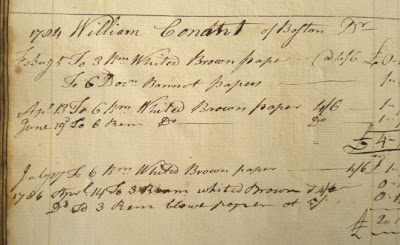 1784 William Conant of Boston Dr
Feby 5 To 3 Rm Whited Brown paper @ 4/6 £0
To 6 Dozn Bonnet Papers
Apl 12 To 6 Rm Whited Brown paper 4/6
June 19 To 6 Rem Do Do
£4
July 17 To 6 Rm Whited Brown paper 4/6
1786 14 To 3 Ream whited Brown 4/6
Do To 3 Rem blowe paper at
£